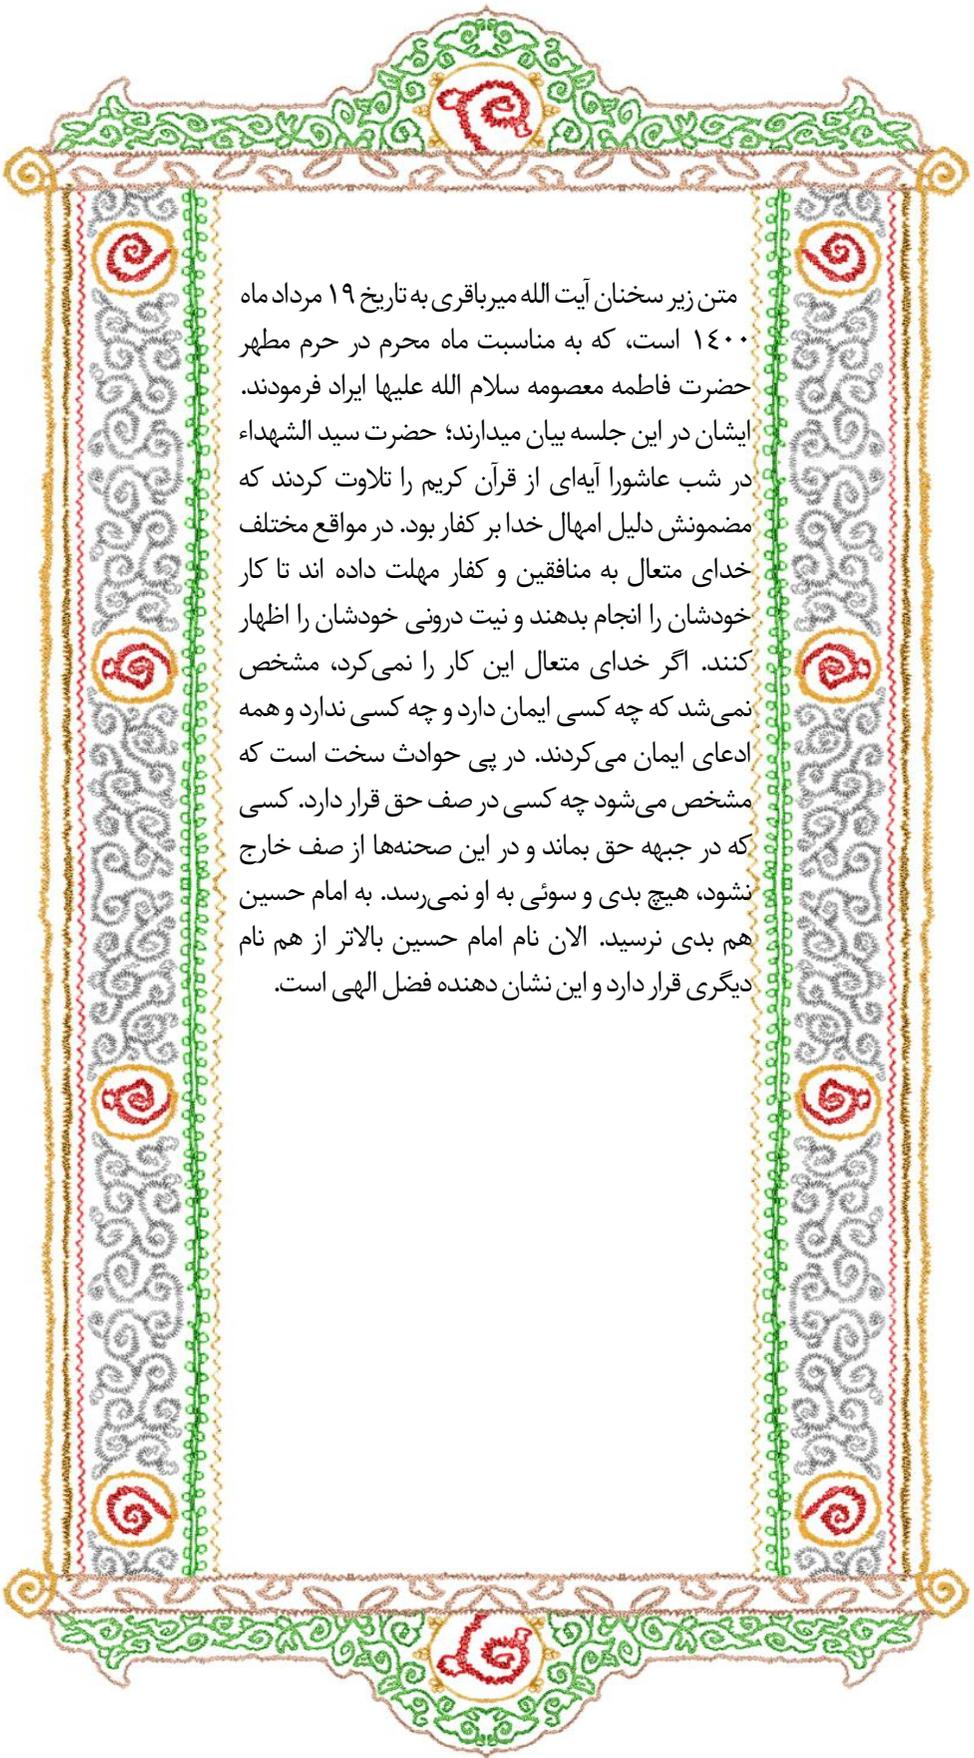 متن زیر سخنان آیت الله میرباقری به تاریخ ۱۹ مرداد ماه
۱٤۰۰ است، که به مناسبت ماه محرم در حرم مطهر
حضرت فاطمه معصومه سلام الله علیها ایراد فرمودند.
ایشان در این جلسه بیان میدارند؛ حضرت سید الشهداء
در شب عاشورا آیه‌ای از قرآن کریم را تلاوت کردند که
مضمونش دلیل امهال خدا بر کفار بود. در مواقع مختلف
خدای متعال به منافقین و کفار مهلت داده اند تا کار
خودشان را انجام بدهند و نیت درونی خودشان را اظهار
کنند. اگر خدای متعال این کار را نمی‌کرد، مشخص
نمی‌شد که چه کسی ایمان دارد و چه کسی ندارد و همه
ادعای ایمان می‌کردند. در پی حوادث سخت است که
مشخص می‌شود چه کسی در صف حق قرار دارد. کسی
که در جبهه حق بماند و در این صحنه‌ها از صف خارج
نشود، هیچ بدی و سوئی به او نمی‌رسد. به امام حسین
هم بدی نرسید. الان نام امام حسین بالاتر از هم نام
دیگری قرار دارد و این نشان دهنده فضل الهی است.